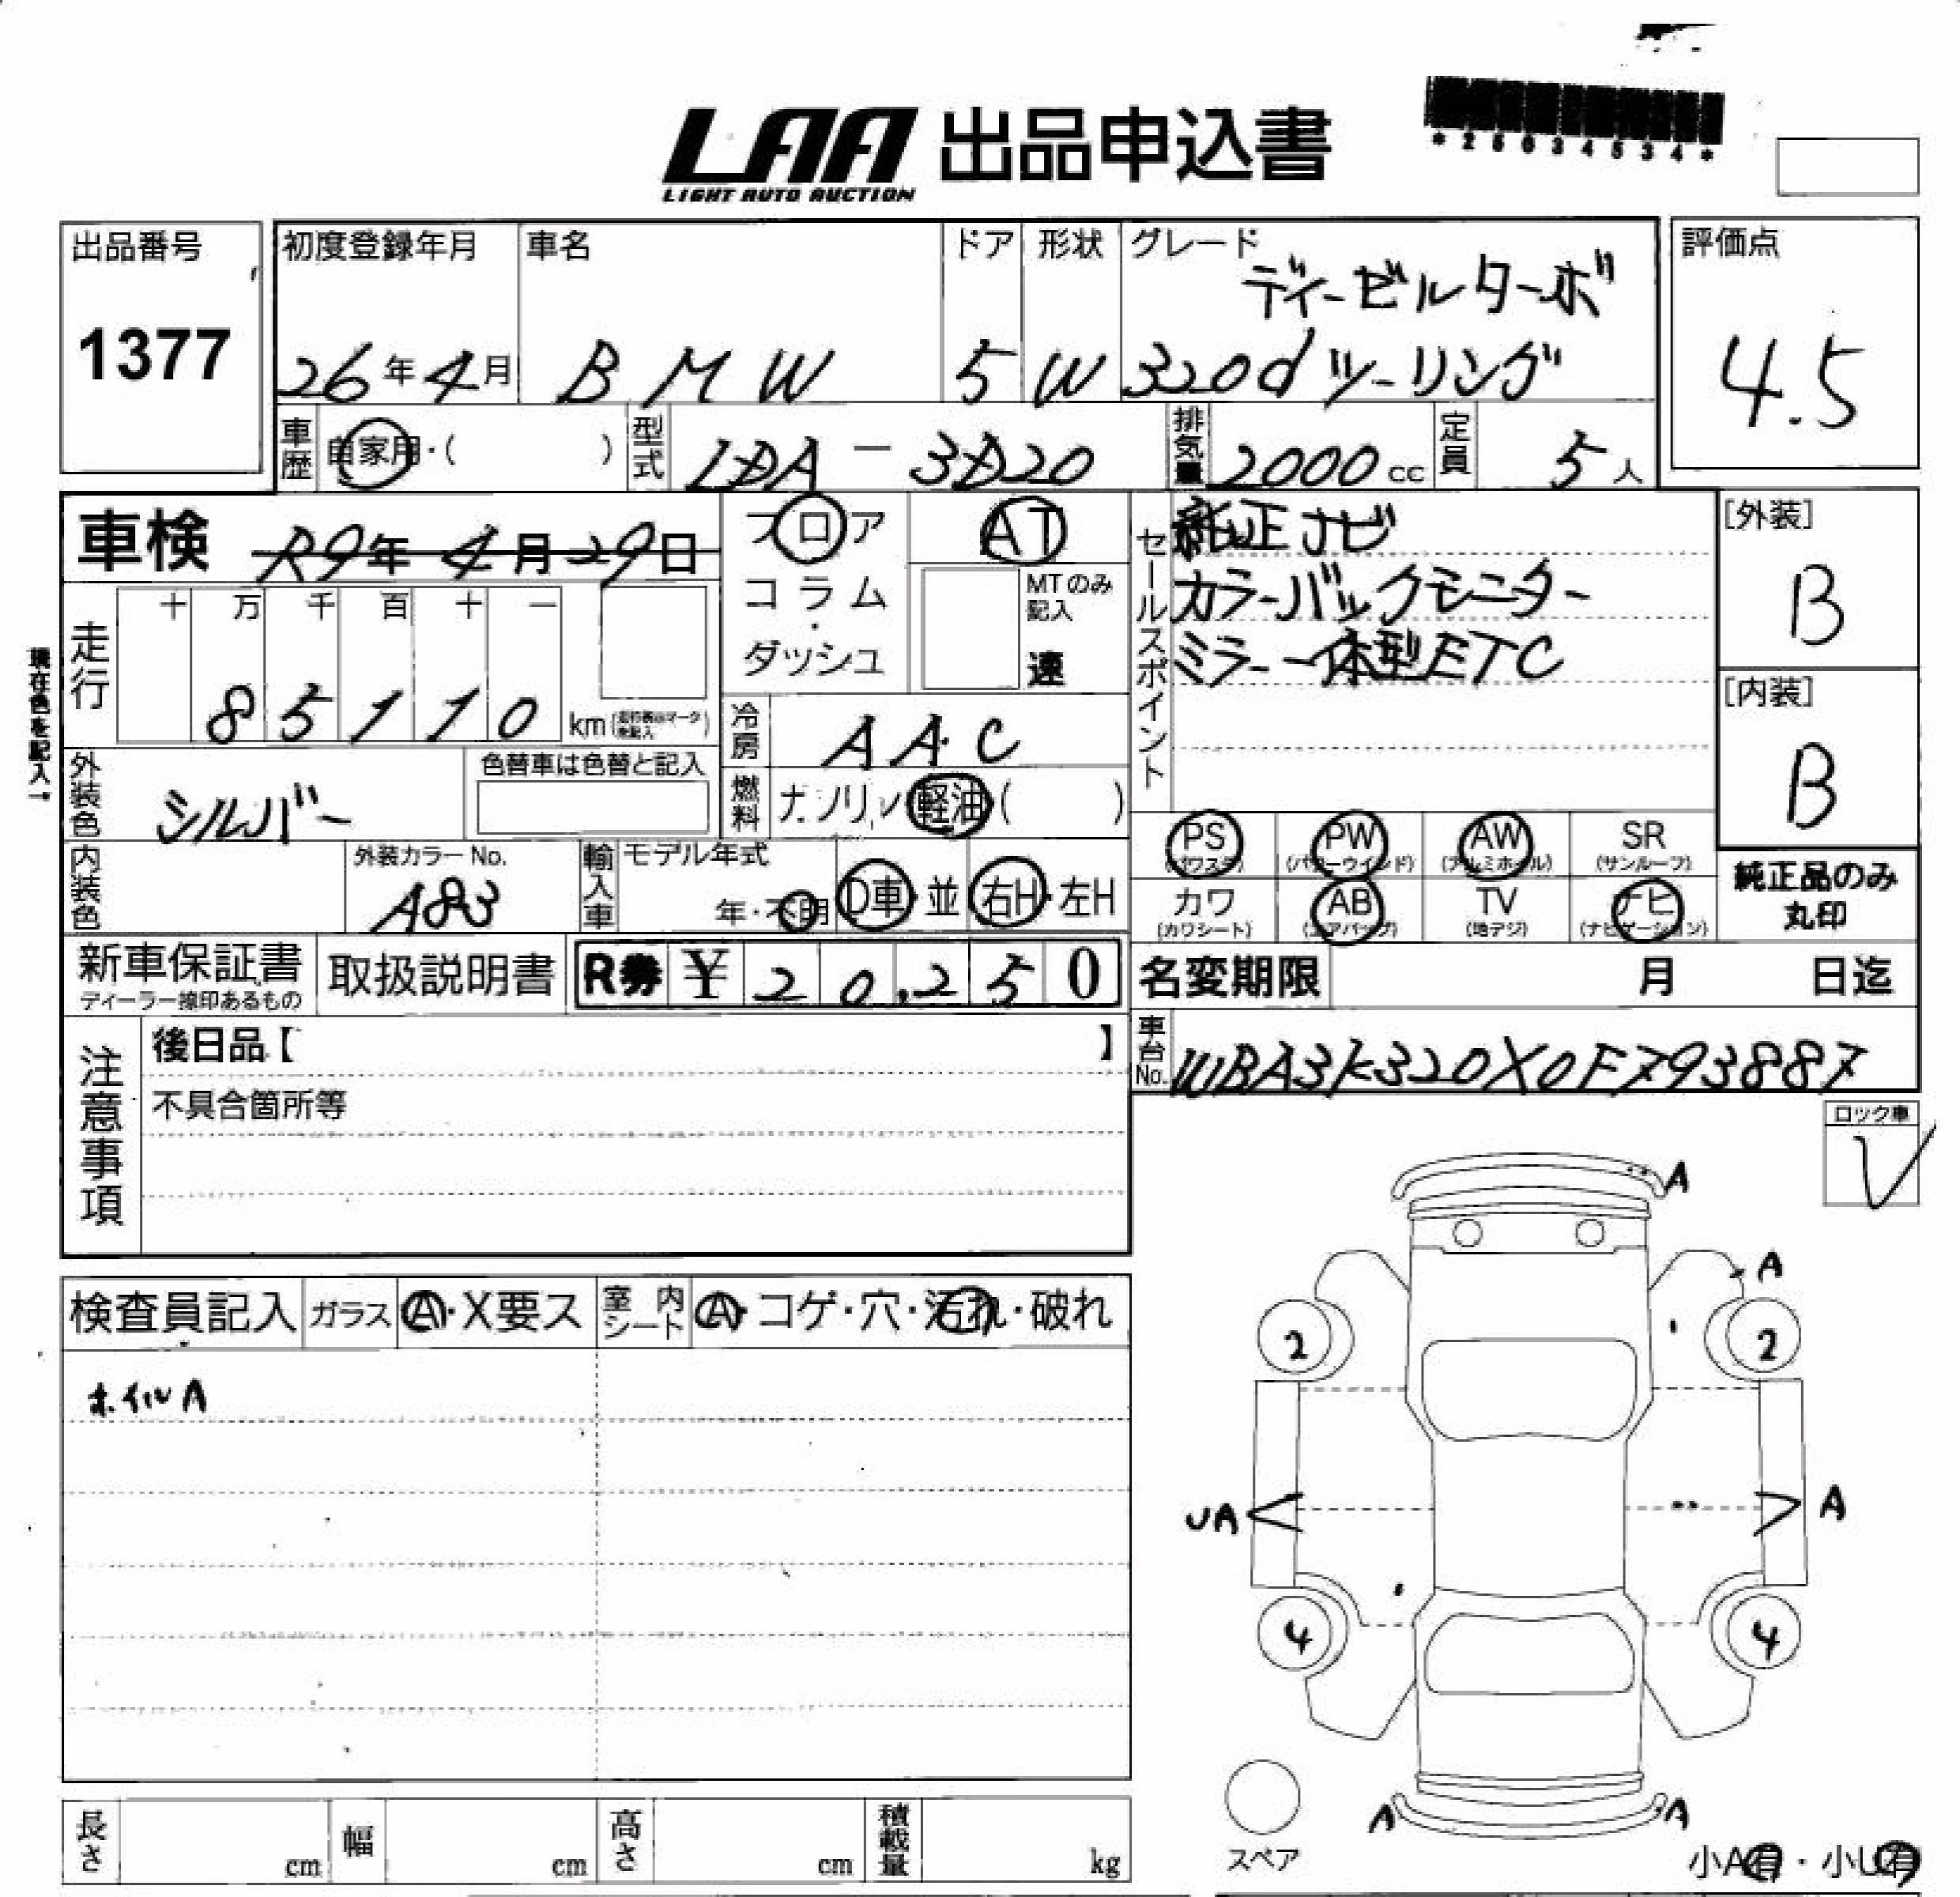 LAA 出品申込書
LIGHT AUTO AUCTION
*25034534*
出品番号
1377
初度登録年月
26年4月
車名
BMW
ドア
5
形状
W
グレード
ディーゼルターボ
320d ツーリング
評価点
4.5
車歴 自家用・( )
型式 LDA－3D20
排気量 2000 cc
定員 5人
車検 R9年4月29日
フロア
コラム
・
ダッシュ
AT
MTのみ
記入
速
セールスポイント
純正ナビ
カラーバックモニター
ミラー一体型ETC
[外装]
B
[内装]
B
現在色を記入→
走行
十 万 千 百 十 一
8 5 1 1 0 km
冷房 AAC
燃料 ガソリン 軽油 ( )
外装色 シルバー
色替車は色替と記入
内装色
外装カラーNo.
A83
輸入車
モデル年式
年・不明
D車・並
右H・左H
PS (パワステ)
PW (パワーウインド)
AW (アルミホイル)
SR (サンルーフ)
カワ (カワシート)
AB (エアバッグ)
TV (地デジ)
ナビ (ナビゲーション)
純正品のみ
丸印
新車保証書
ディーラー捺印あるもの
取扱説明書
R券 ¥ 20,250
名変期限 月 日迄
車台No. WBA3K320X0F793887
注意事項
後日品【 】
不具合箇所等
ロック車
V
検査員記入
ガラス A・X要ス
室内シート A・コゲ・穴・汚れ・破れ
ホイルA
A
A
2 2
UA A
4 4
A A
スペア
小A有・小U有
長さ cm
幅 cm
高さ cm
積載量 kg